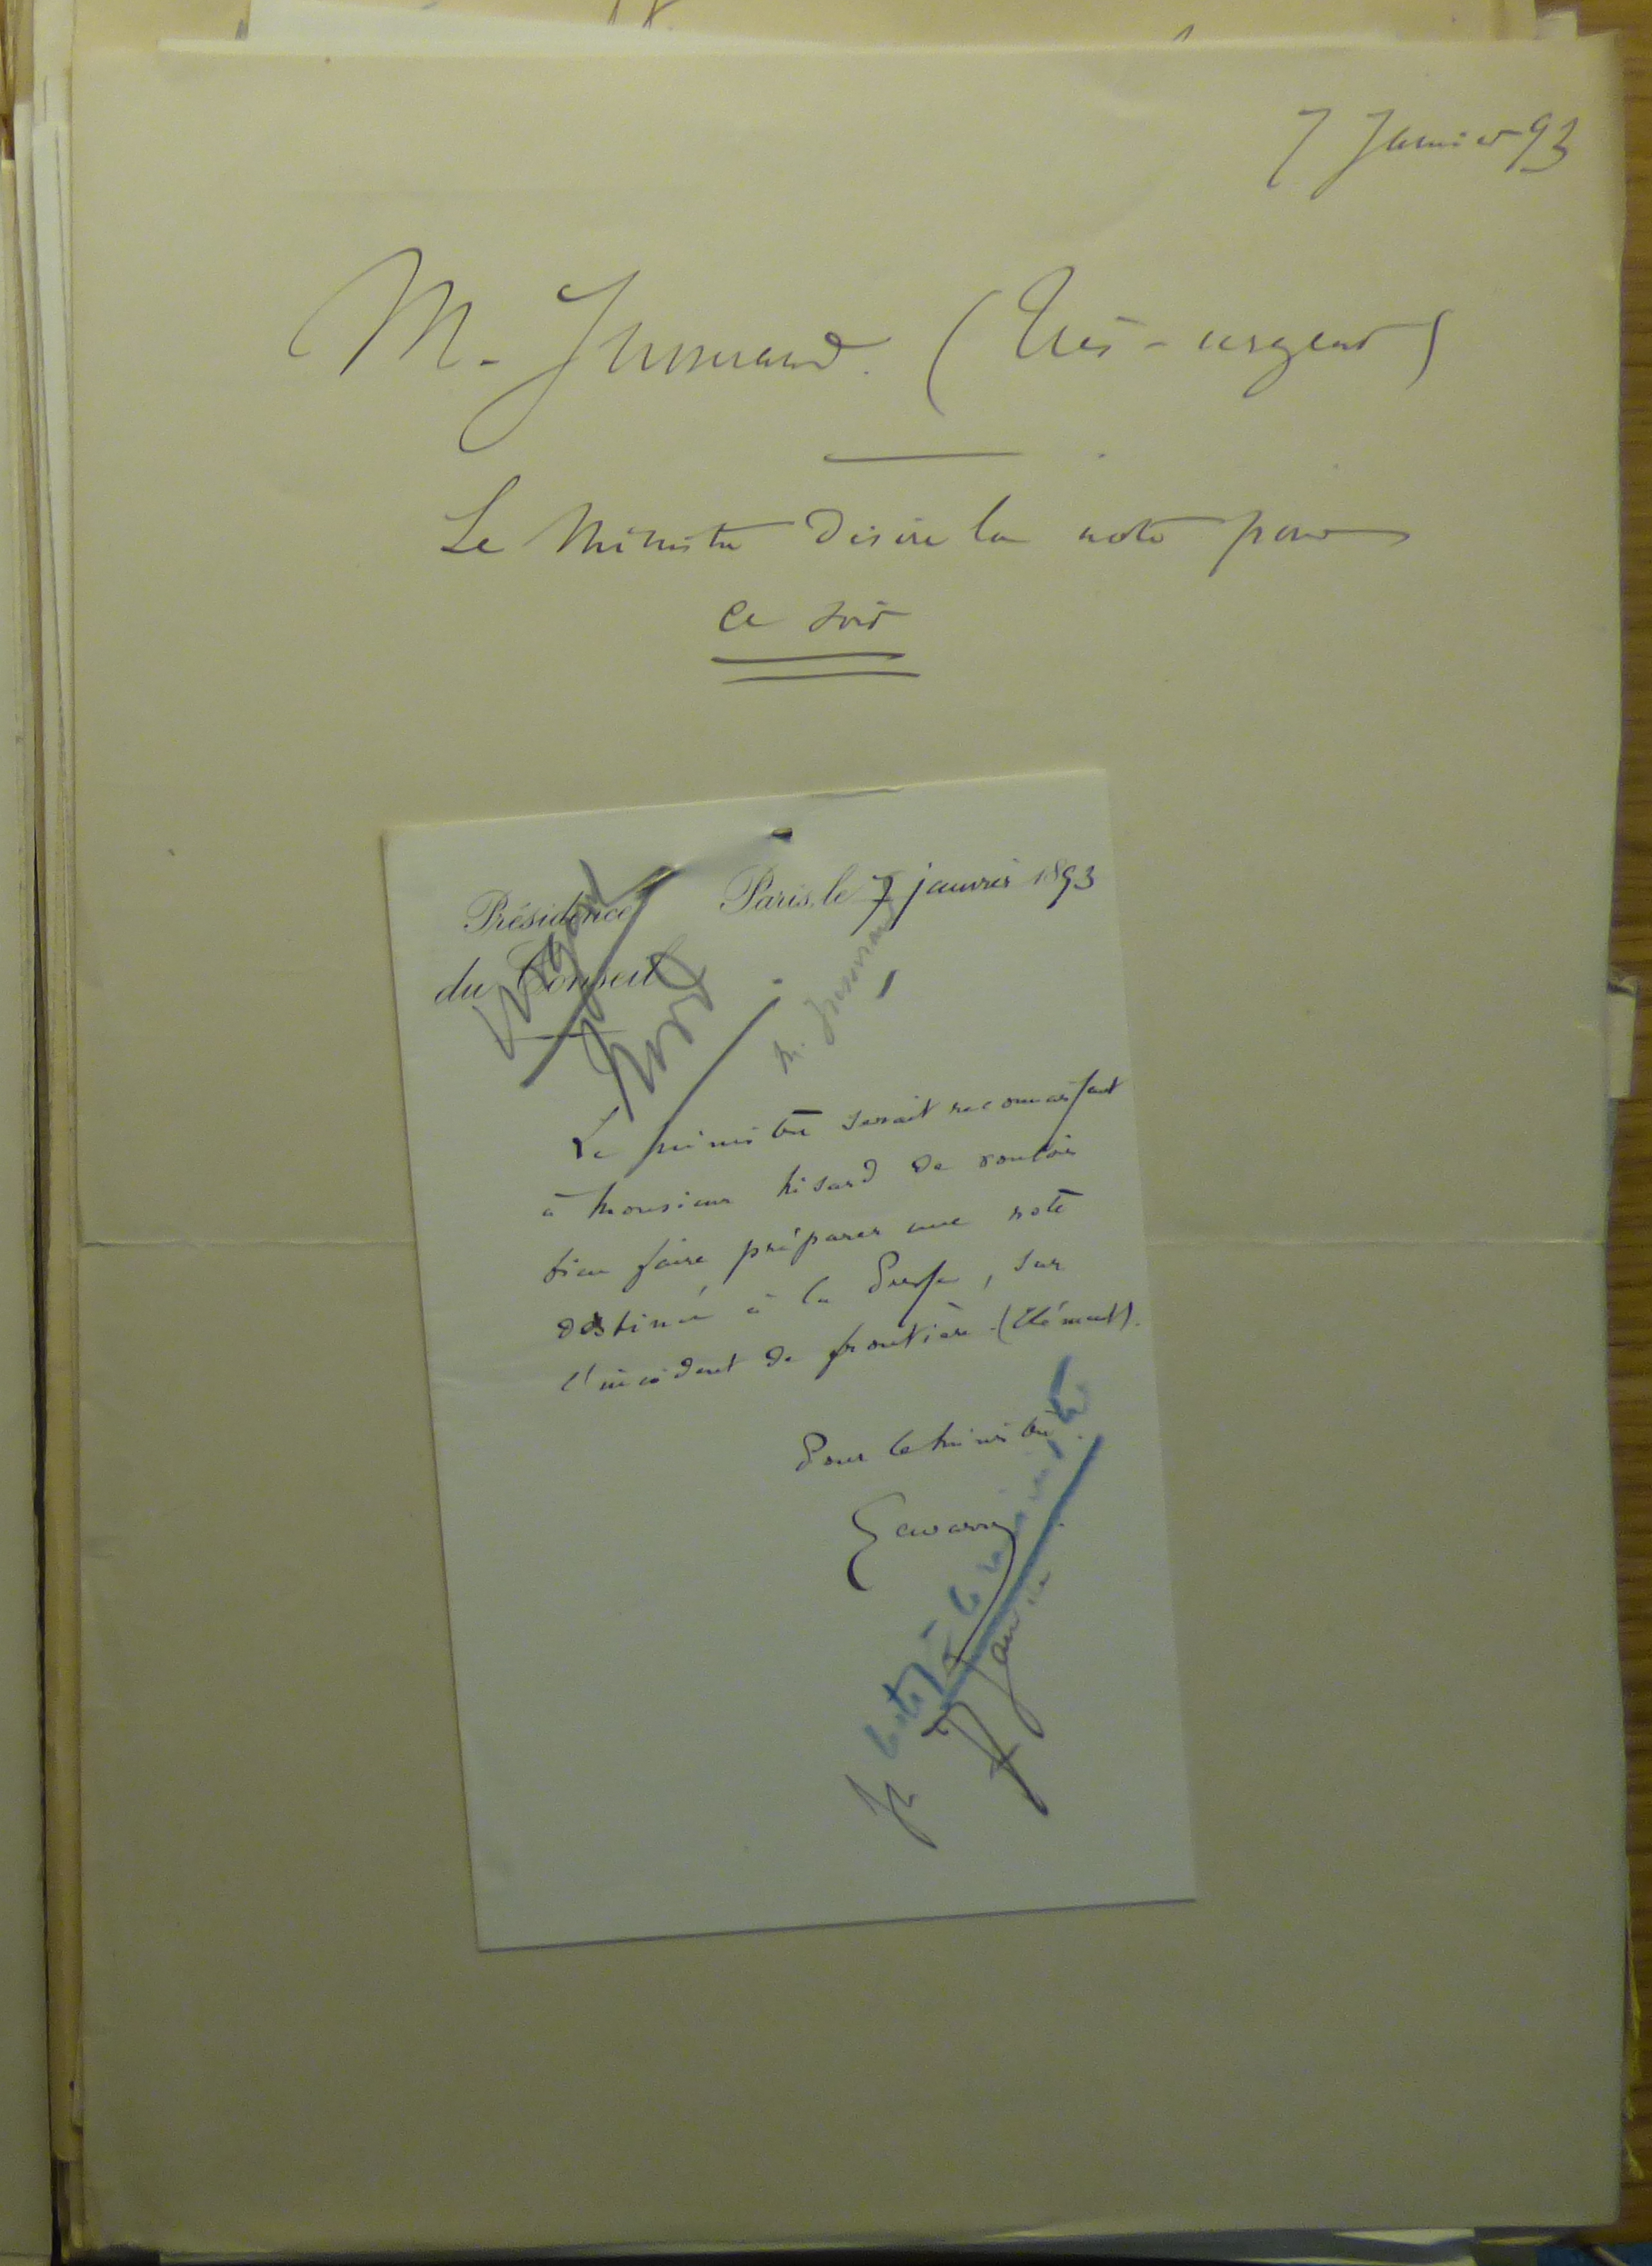 7 Janvier 93
M. Jusserand. (Très-urgent)
Le Ministre désire la note pour
ce soir
Présidence
du Conseil
Paris, le 7 janvier 1893
Urgent
Nord
M. Jusserand
Le ministre serait reconnaissant
à Monsieur Nisard de vouloir
bien faire préparer une note
destinée à la Presse, sur
l'incident de frontière (Clément).
Pour le ministre
Gavarry